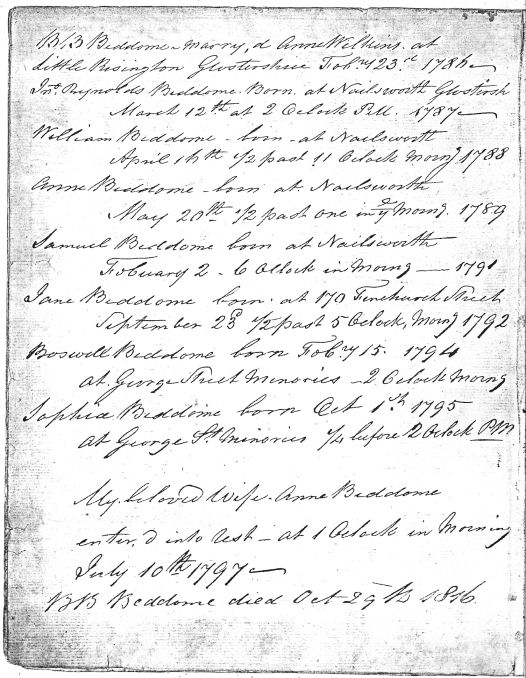 B,B Beddome - marry,d Anne Wilkins at
Little Risington Glostershire Feb:ry 23rd 1786
Jno. Reynolds Beddome. Born. at Nailsworth Glostersh
March 12th at 2 Oclock P.M. 1787
William Beddome - born - at Nailsworth
April 14th 1/2 past 11 Oclock Morng 1788
Anne Beddome - born at Nailsworth
May 20th 1/2 past one in ye Morng. 1789
Samuel Beddome born at Nailsworth
Febuary 2 - 6 Oclock in Morng — 1791
Jane Beddome born. at 170 Fenchurch Street
September 23d 1/2 past 5 Oclock, Morng 1792
Boswell Beddome born Feb:ry 15. 1794
at. George Street Minories - 2 Oclock Morng
Sophia Beddome born Oct 1st 1795
at George St. Minories 1/4 before 2 Oclock PM
My beloved Wife. Anne Beddome
enter,d into rest - at 1 Oclock in Morning
July 10th 1797
BB Beddome died Oct 29 1816